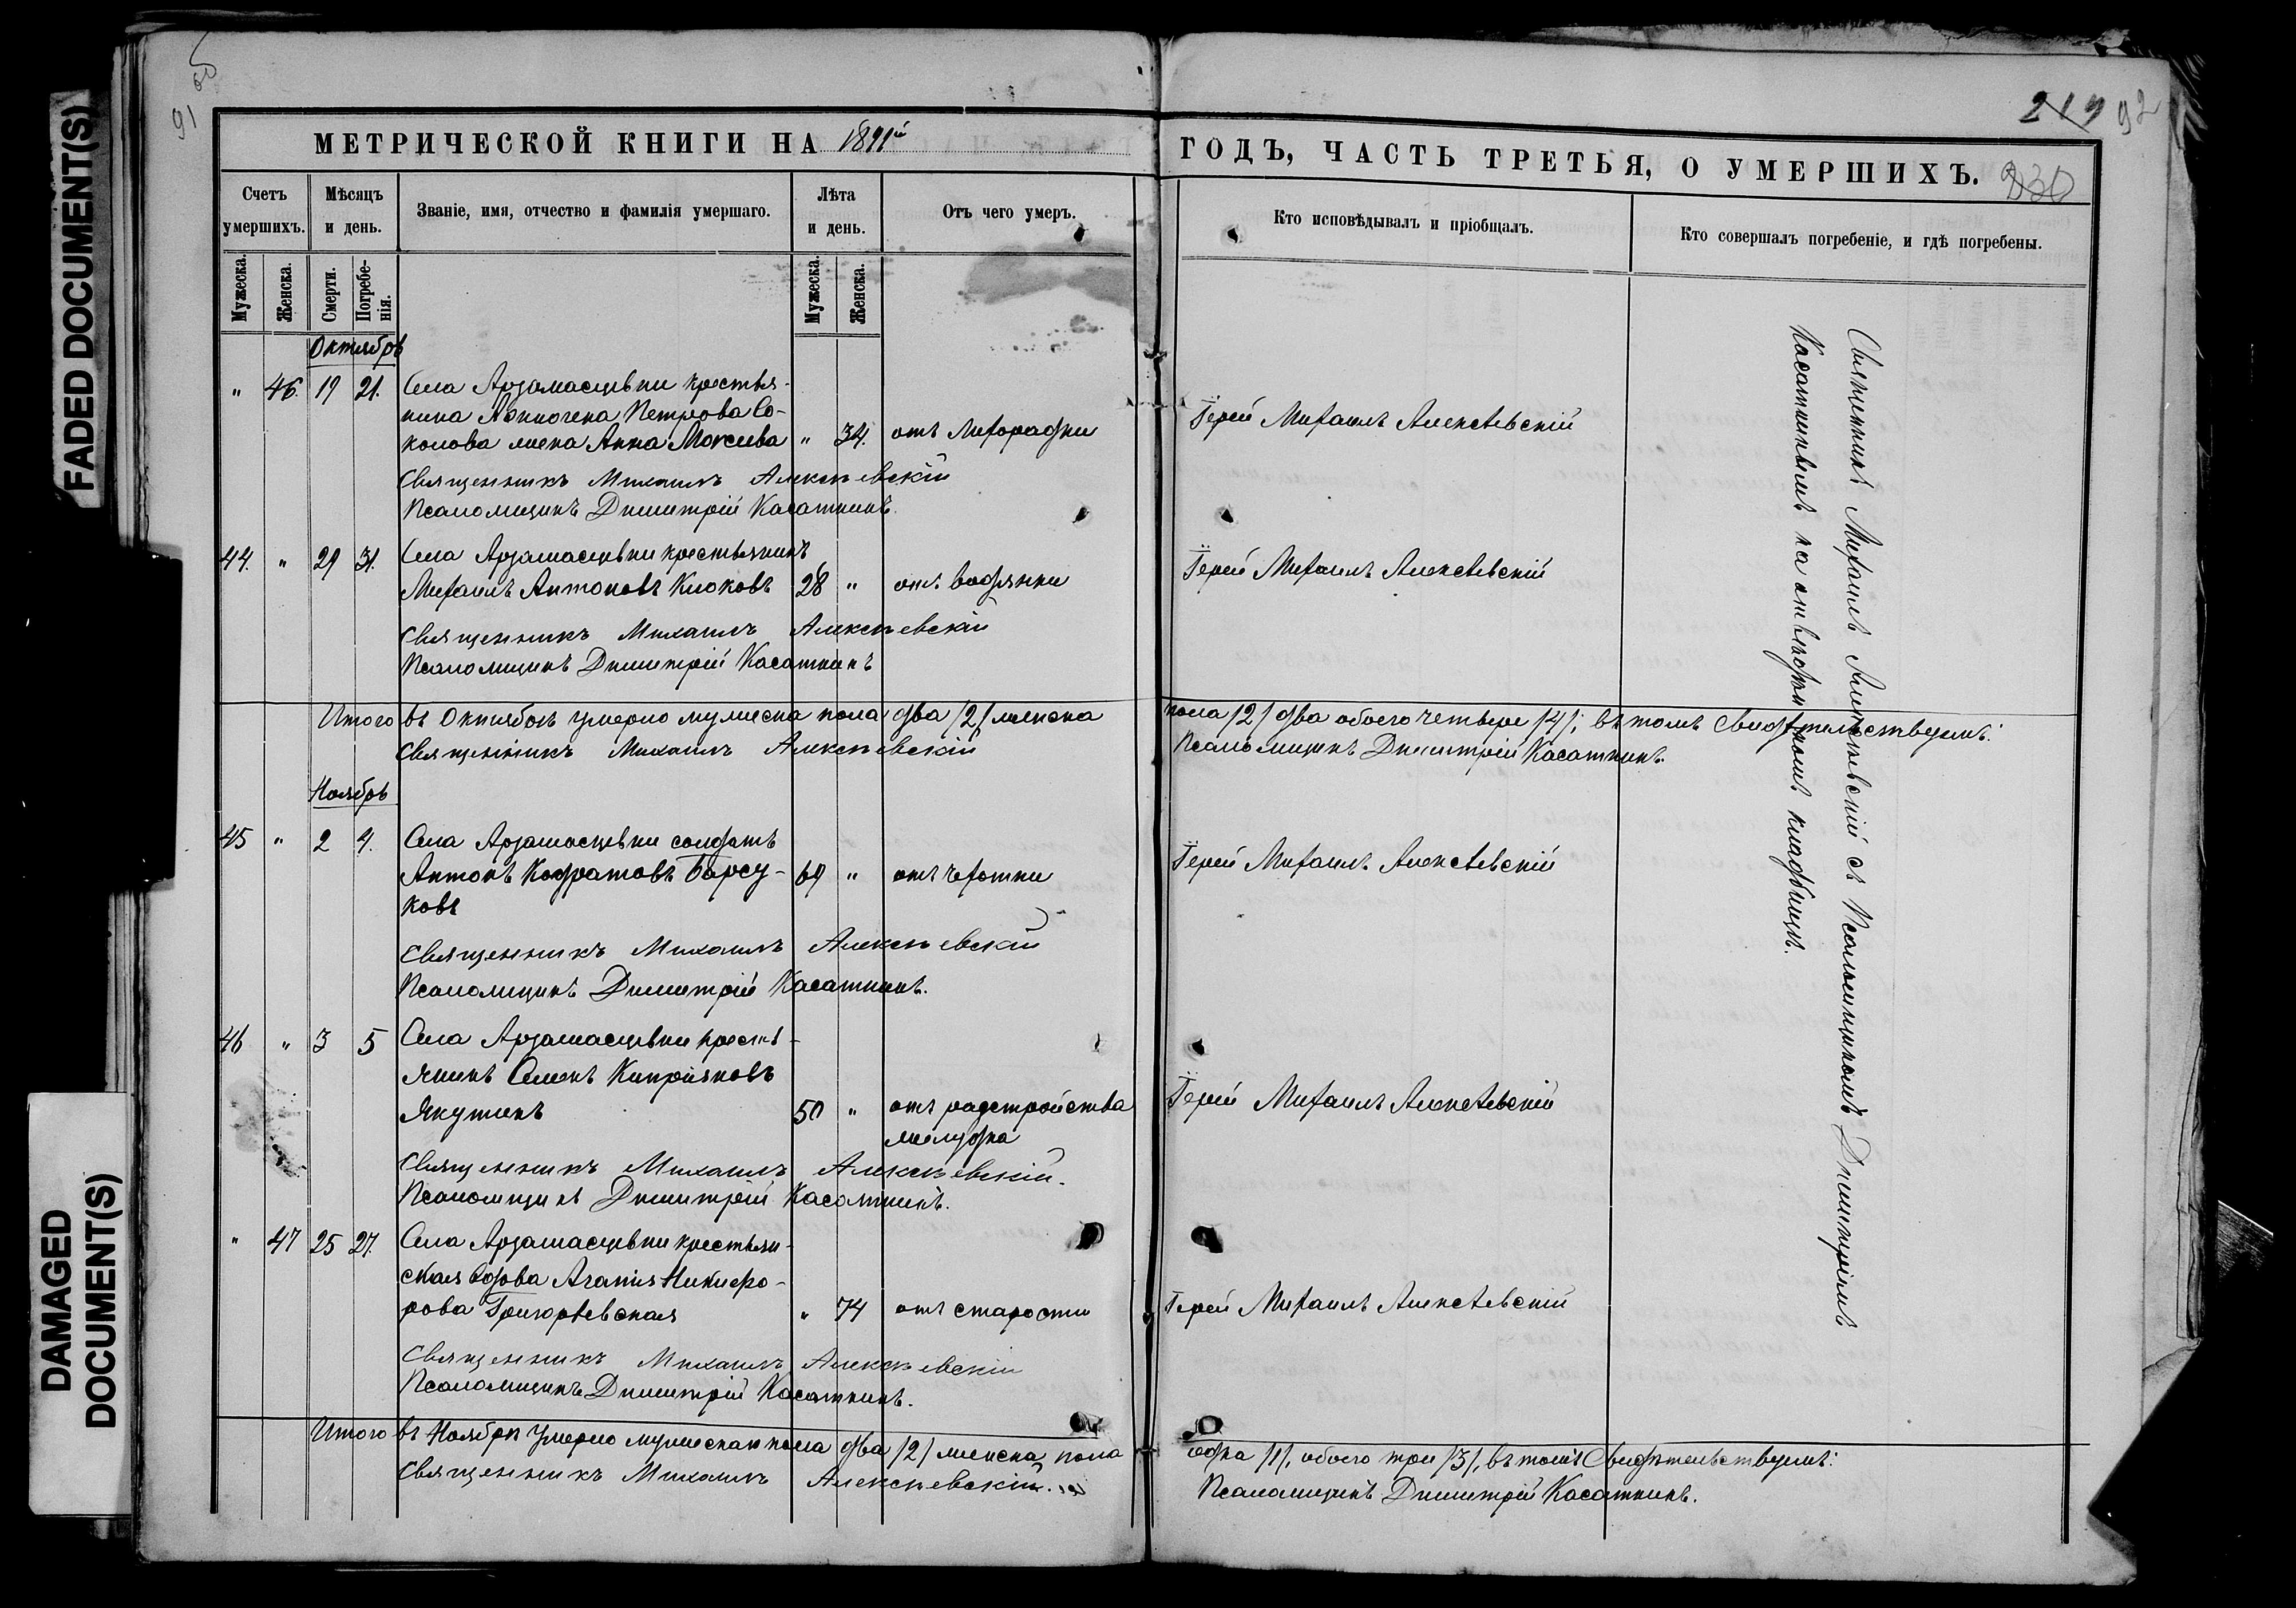 FADED DOCUMENT(S)
DAMAGED
DOCUMENT(S)
91 об
219 92
230
МЕТРИЧЕСКОЙ КНИГИ НА 1891й
ГОДЪ, ЧАСТЬ ТРЕТЬЯ, О УМЕРШИХЪ.
Счетъ умершихъ.
Мѣсяцъ и день.
Званіе, имя, отчество и фамилія умершаго.
Лѣта и день.
Отъ чего умеръ.
Кто исповѣдывалъ и пріобщалъ.
Кто совершалъ погребеніе, и гдѣ погребены.
Мужеска. Женска. Смерти. Погребе-нія. Мужеска. Женска.
Октябрь
" 46. 19 21. Села Арзамасцевки крестья-
нина Петрова Со-
колова жена Анна Моисеева " 34. отъ лихорадки Іерей Михаилъ Алексѣевскій
Священникъ Михаилъ Алексѣевскій
Псаломщикъ Димитрій Касаткинъ.
44. " 29 31. Села Арзамасцевки крестьянинъ
Михаилъ Антоновъ Клоковъ 28 " отъ водянки Іерей Михаилъ Алексѣевскій
Священникъ Михаилъ Алексѣевскій
Псаломщикъ Димитрій Касаткинъ
Итого въ Октябрѣ умерло мужеска пола два /2/ женска пола /2/ два обоего четыре /4/; въ томъ свидѣтельствуемъ:
Священникъ Михаилъ Алексѣевскій Псаломщикъ Димитрій Касаткинъ.
Ноябрь
45 " 2 4. Села Арзамасцевки солдатъ
Антонъ Кодратовъ Барсу- 69 " отъ чахотки Іерей Михаилъ Алексѣевскій
ковъ
Священникъ Михаилъ Алексѣевскій
Псаломщикъ Димитрій Касаткинъ.
46 " 3 5 Села Арзамасцевки кресть-
янинъ Семенъ Кипріяновъ
Якутинъ 50 " отъ разстройства Іерей Михаилъ Алексѣевскій
желудка
Священникъ Михаилъ Алексѣевскій.
Псаломщикъ Димитрій Касаткинъ.
" 47 25 27. Села Арзамасцевки крестьян-
ская вдова Агапія Никифо-
рова Григорьевская " 74 отъ старости Іерей Михаилъ Алексѣевскій
Священникъ Михаилъ Алексѣевскій
Псаломщикъ Димитрій Касаткинъ.
Итого въ Ноябрѣ умерло мужескаго пола два /2/ женска пола одна /1/, обоего три /3/, въ томъ свидѣтельствуемъ:
Священникъ Михаилъ Алексѣевскій. Псаломщикъ Димитрій Касаткинъ.
Священникъ Михаилъ Алексѣевскій съ Псаломщикомъ Димитріемъ
Касаткинымъ на отведенномъ кладбищѣ.